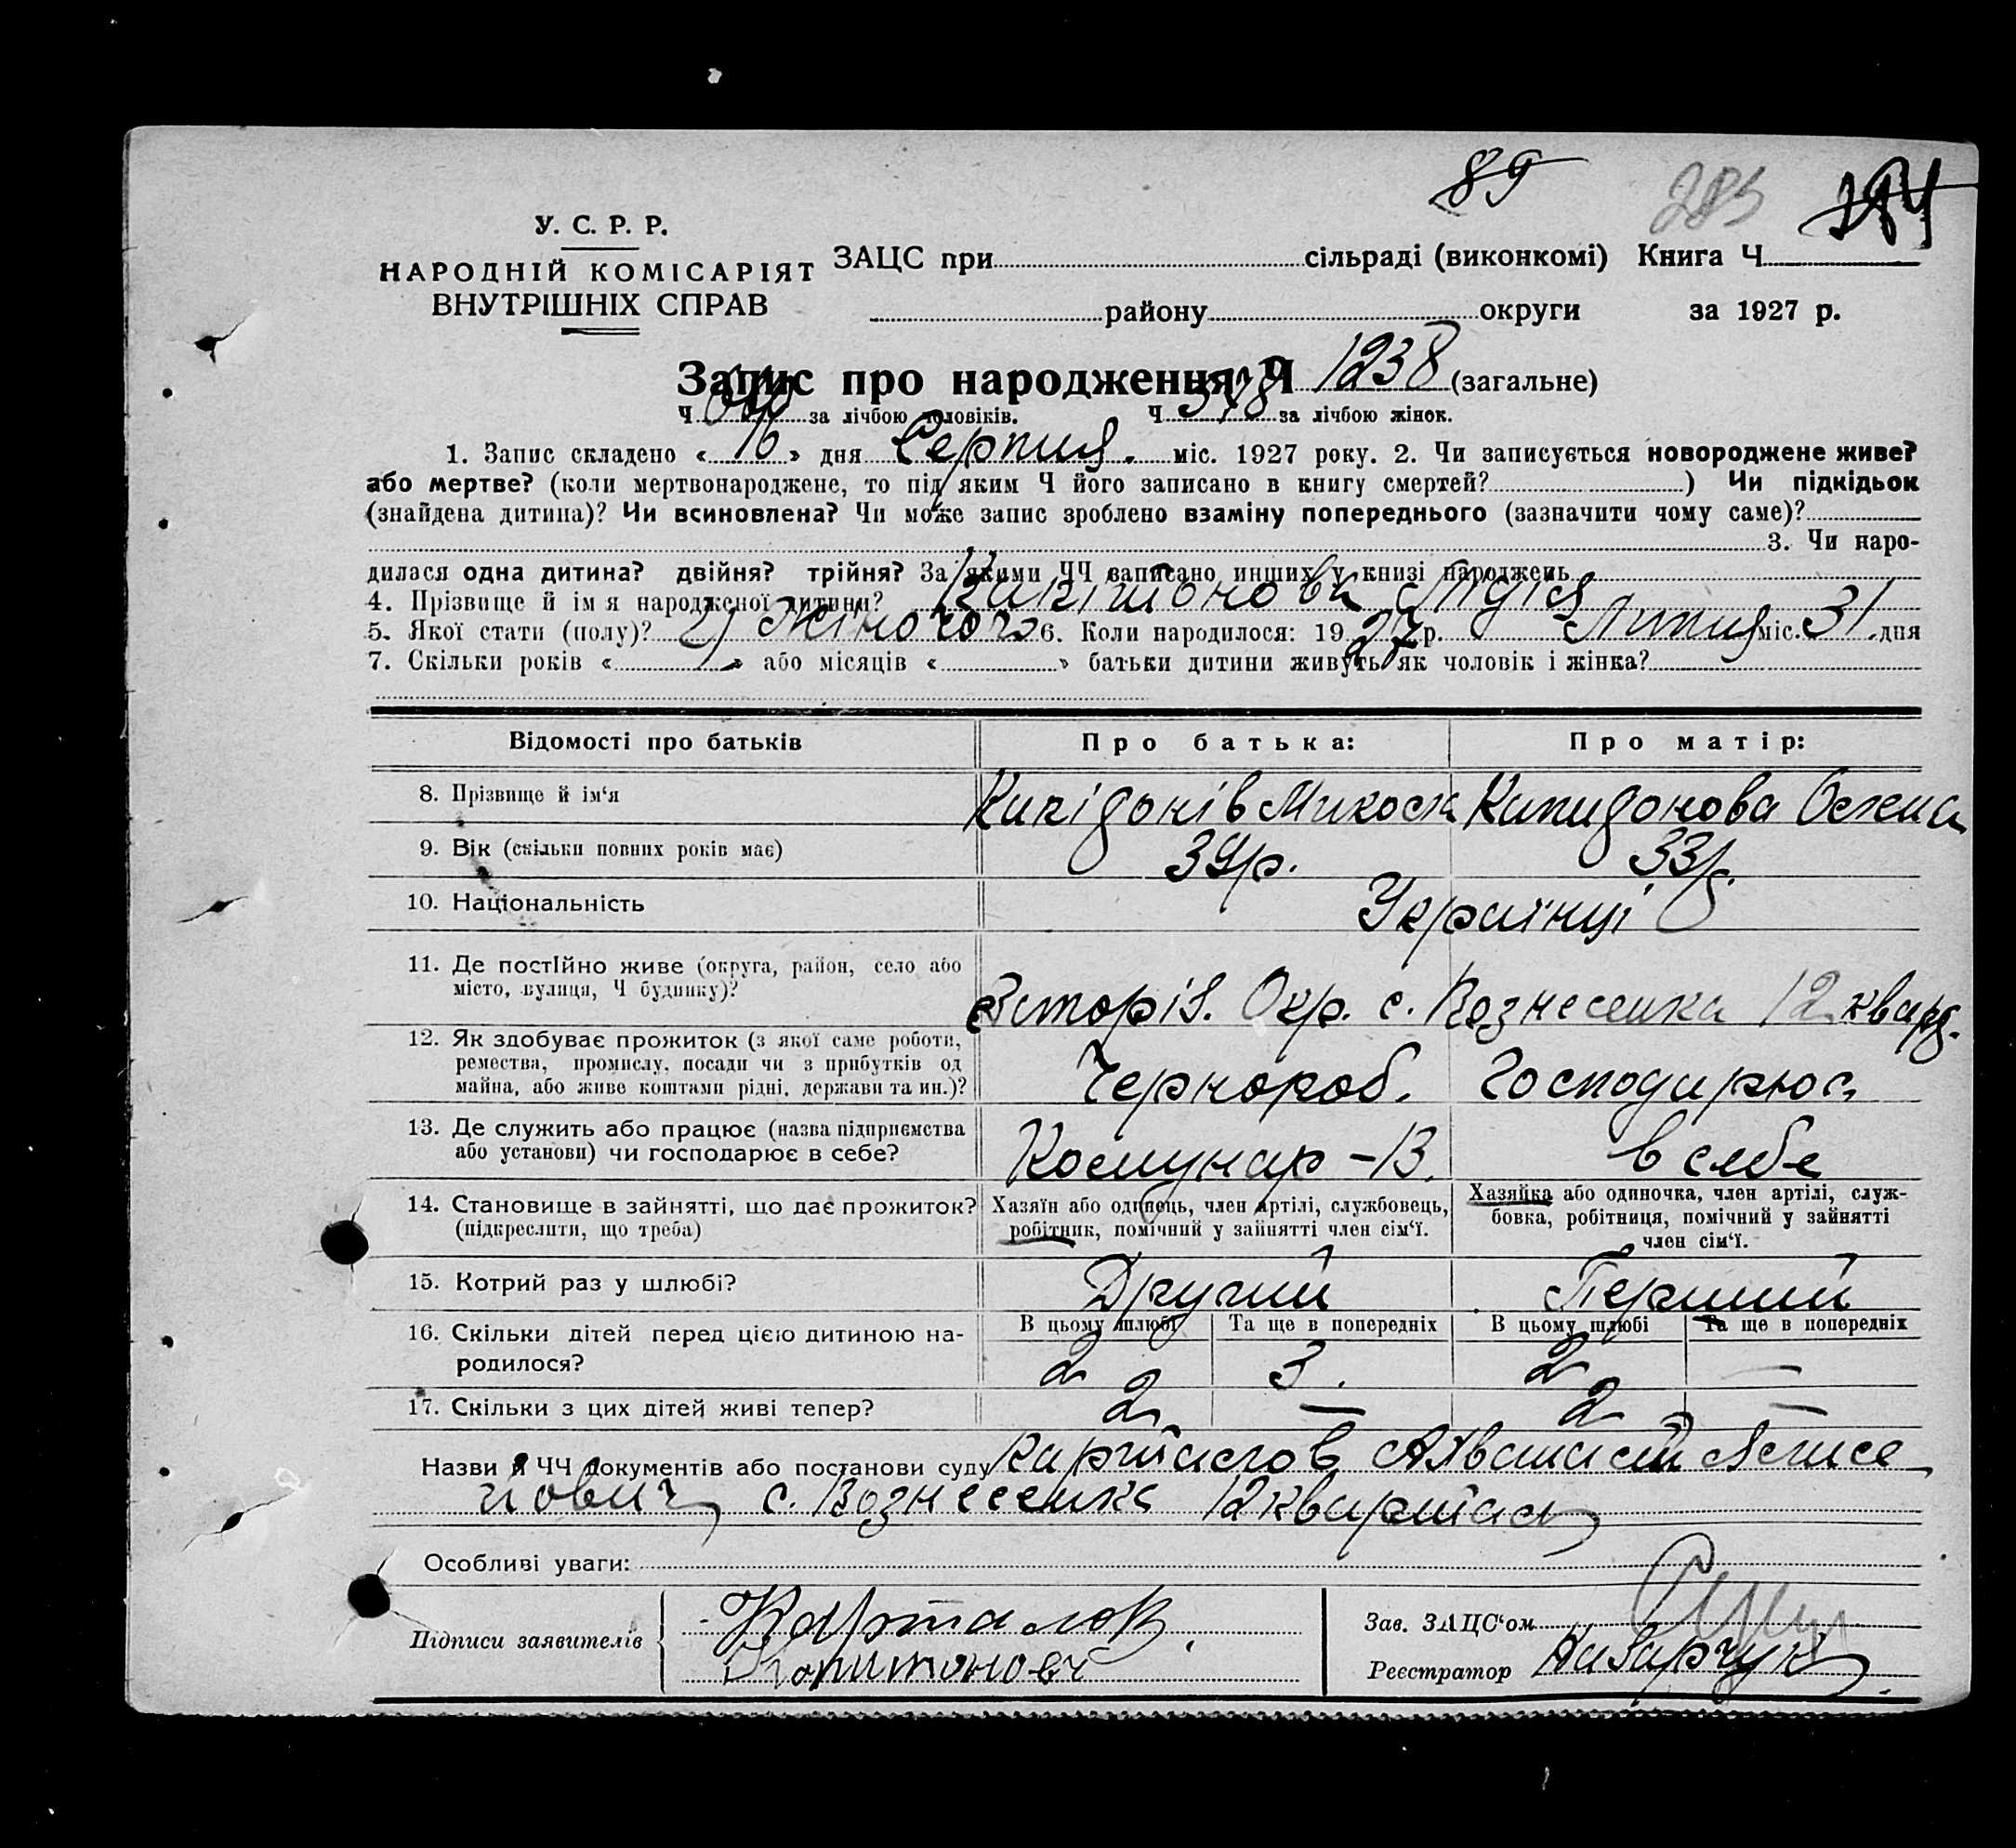 89 285
У. С. Р. Р.
НАРОДНІЙ КОМІСАРІЯТ
ВНУТРІШНІХ СПРАВ
ЗАЦС при сільраді (виконкомі) Книга Ч
району округи за 1927 р.
Запис про народження Ч 1238 (загальне)
Ч за лічбою чоловіків. Ч 578 за лічбою жінок.
1. Запис складено « 16 » дня Серпня. міс. 1927 року. 2. Чи записується новороджене живе?
або мертве? (коли мертвонароджене, то під яким Ч його записано в книгу смертей? ) Чи підкідьок
(знайдена дитина)? Чи всиновлена? Чи може запис зроблено взаміну попереднього (зазначити чому саме)?
3. Чи наро-
дилася одна дитина? двійня? трійня? За якими ЧЧ записано инших у книзі народжень
4. Прізвище й ім я народженої дитини? Капітонова Лідія
5. Якої стати (полу)? 2) Жіночого 6. Коли народилося: 1927 р. Липня міс. 31 дня
7. Скільки років « » або місяців « » батьки дитини живуть як чоловік і жінка?
Відомості про батьків Про батька: Про матір:
8. Прізвище й ім‘я Капідонів Микола Капидонова
9. Вік (скільки повних років має) 39р. 33р.
10. Національність Українці
11. Де постійно живе (округа, район, село або
місто, вулиця, Ч будинку)?
Запоріз. Окр. с. Вознесенка 12 кварт.
12. Як здобуває прожиток (з якої саме роботи,
ремества, промислу, посади чи з прибутків од
майна, або живе коштами рідні, держави та ин.)?
Чернороб. Господарює
13. Де служить або працює (назва підприємства
або установи) чи господарює в себе?
Комунар - в себе
14. Становище в зайнятті, що дає прожиток?
(підкреслити, що треба)
Хазяїн або одинець, член артілі, службовець,
робітник, помічний у зайнятті член сім‘ї.
Хазяйка або одиночка, член артілі, служ-
бовка, робітниця, помічний у зайнятті
член сім‘ї.
15. Котрий раз у шлюбі? Другий Перший
В цьому шлюбі Та ще в попередніх В цьому шлюбі Та ще в попередніх
16. Скільки дітей перед цією дитиною на-
родилося?
2 3. 2 —
17. Скільки з цих дітей живі тепер? 2 — 2 —
Назви й ЧЧ документів або постанови суду Карталов
с. Вознесенка 12 квартал
Особливі уваги:
Підписи заявителів
Карталов
Капитонова
Зав. ЗАЦС‘ом
Реєстратор Назарчук